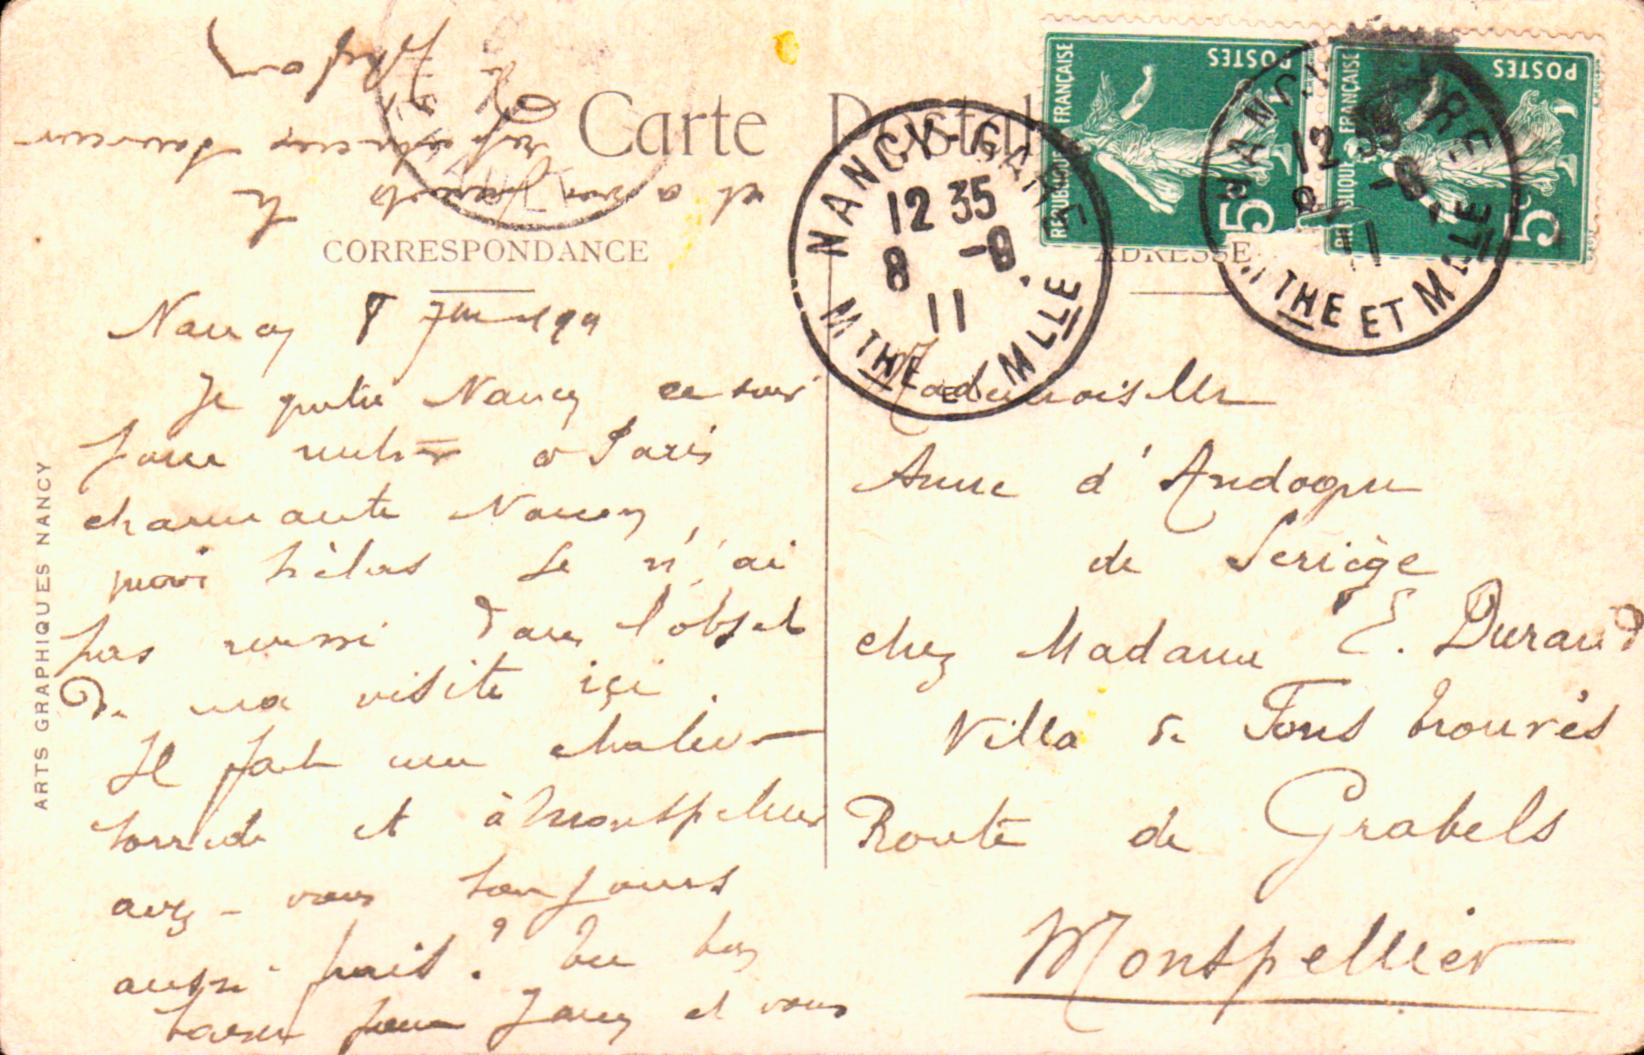 Carte Postale
CORRESPONDANCE
ADRESSE
RÉPUBLIQUE FRANÇAISE
POSTES
5c
RÉPUBLIQUE FRANÇAISE
POSTES
5c
NANCY-GARE
12 35
8 -9
11
MTHE ET MLLE
NANCY-GARE
12 35
8 -9
11
MTHE ET MLLE
Nancy 8 7bre 1911
Je quitte Nancy ce soir
pour rentrer à Paris
charmante Nancy,
mais hélas je n'ai
pas réussi dans l'objet
de ma visite içi.
Il fait une chaleur
torride et à Montpellier
avez-vous toujours
aussi frais? Un bon
baiser pour Jany et vous
et à vous
Mademoiselle
Anne d'Andoque
de Seriège
chez Madame E. Durand
Villa de Fons trouvés
Route de Grabels
Montpellier
ARTS GRAPHIQUES NANCY